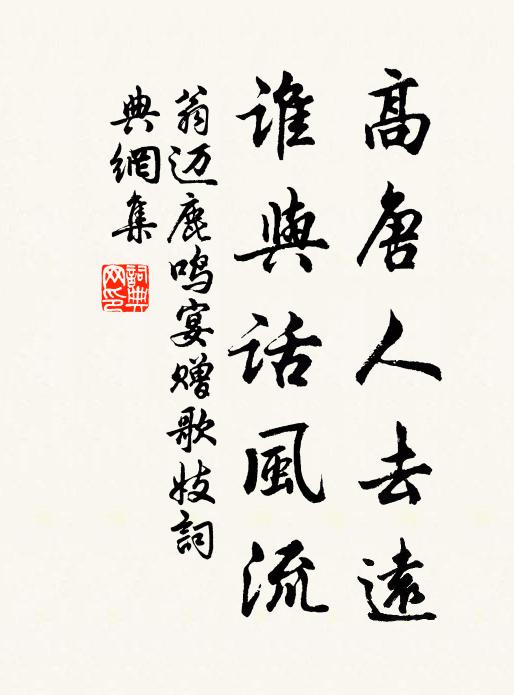 高唐人去遠
誰與話風流
翁迈鹿鸣宴赠歌妓詞
典網集
詞典网印